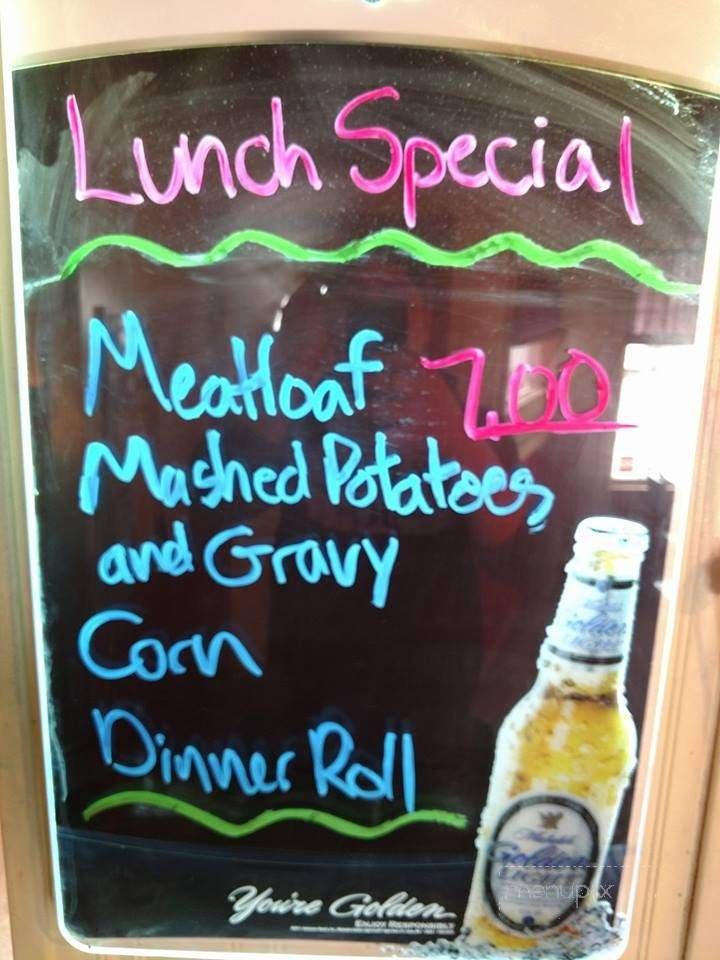 Lunch Special
Meatloaf 7.00
Mashed Potatoes
and Gravy
Corn
Dinner Roll
You're Golden
ENJOY RESPONSIBLY
menupix